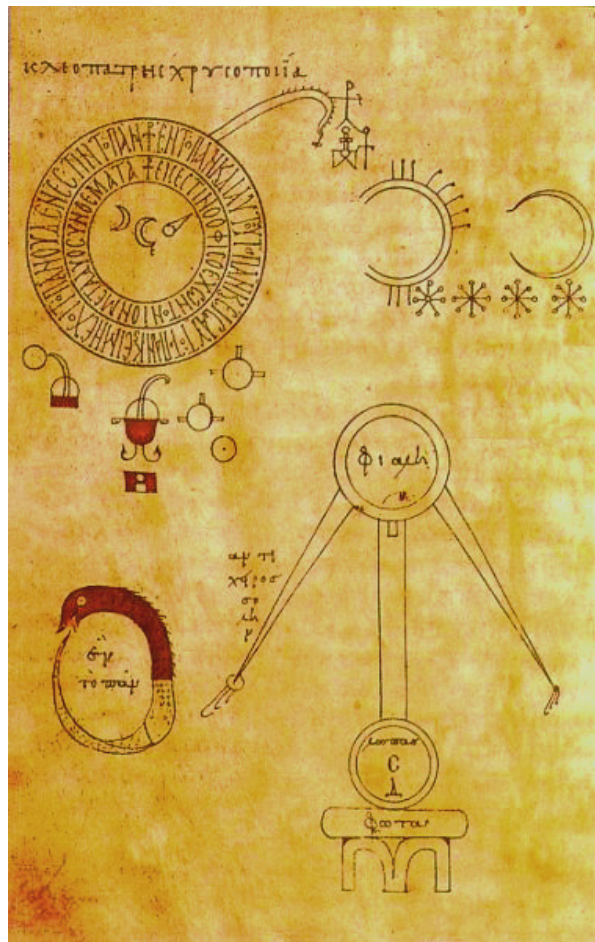 κλεοπατρης χρυσοποιΐα
ἐν τ̀ παν κ δι αυτου τ̀ παν κ εις αυτ̀ τ̀ παν κ ει μη εχοι τ̀ παν ουδεν εστιν τ̀ παν
εις εστιν ο οφις ο εχων τ̀ν ιον μετα δυο συνθεματα
φιάλη
αντι
χειρος
σο
λη
ν
ἓν
τὸ πᾶν
λωπας
φωτα